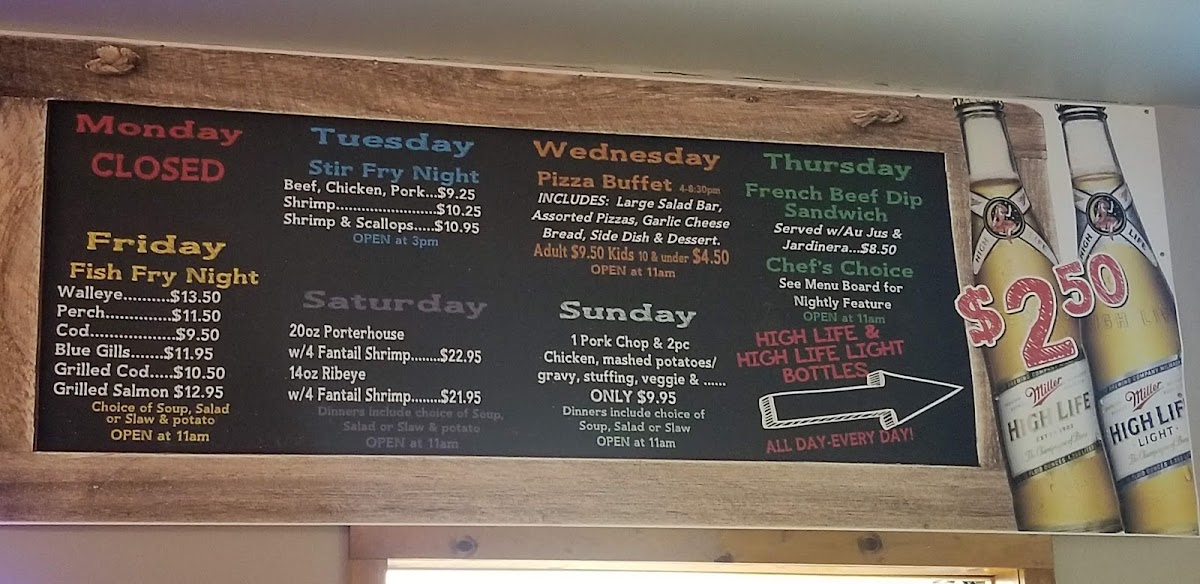 Monday
CLOSED
Tuesday
Stir Fry Night
Beef, Chicken, Pork...$9.25
Shrimp..........................$10.25
Shrimp & Scallops.....$10.95
OPEN at 3pm
Wednesday
Pizza Buffet 4-8:30pm
INCLUDES: Large Salad Bar,
Assorted Pizzas, Garlic Cheese
Bread, Side Dish & Dessert.
Adult $9.50 Kids 10 & under $4.50
OPEN at 11am
Thursday
French Beef Dip
Sandwich
Served w/Au Jus &
Jardinera...$8.50
Chef's Choice
See Menu Board for
Nightly Feature
OPEN at 11am
Friday
Fish Fry Night
Walleye..........$13.50
Perch..............$11.50
Cod..................$9.50
Blue Gills.......$11.95
Grilled Cod.....$10.50
Grilled Salmon $12.95
Choice of Soup, Salad
or Slaw & potato
OPEN at 11am
Saturday
20oz Porterhouse
w/4 Fantail Shrimp........$22.95
14oz Ribeye
w/4 Fantail Shrimp........$21.95
Dinners include choice of Soup,
Salad or Slaw & potato
OPEN at 11am
Sunday
1 Pork Chop & 2pc
Chicken, mashed potatoes/
gravy, stuffing, veggie & ......
ONLY $9.95
Dinners include choice of
Soup, Salad or Slaw
OPEN at 11am
HIGH LIFE &
HIGH LIFE LIGHT
BOTTLES
ALL DAY-EVERY DAY!
$2.50
HIGH LIFE
Miller
HIGH LIFE
HIGH LIFE
Miller
HIGH LIFE
LIGHT